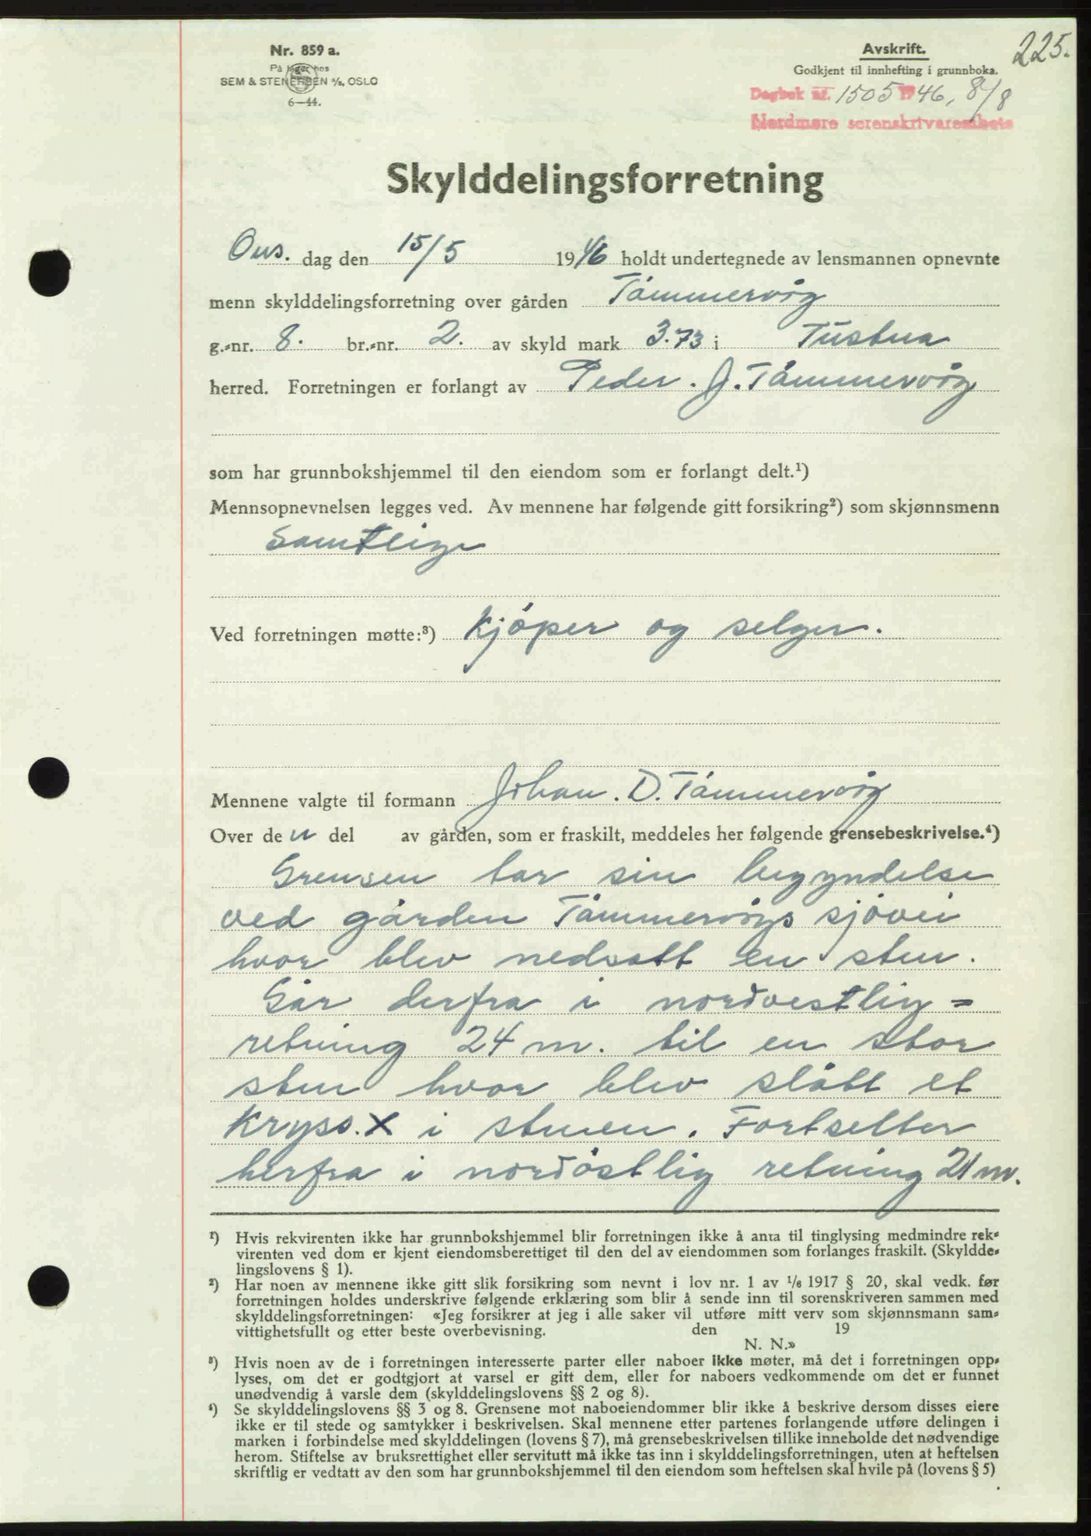 225.
Nr. 859 a.
På lager hos
SEM & STENERSEN A/S, OSLO
6—44.
Avskrift.
Godkjent til innhefting i grunnboka.
Dagbok nr. 1505 1946, 8/8
Nordmøre sorenskriverembete
Skylddelingsforretning
Ons. dag den 15/5 1946 holdt undertegnede av lensmannen opnevnte
menn skylddelingsforretning over gården Tømmervåg
g.-nr. 8. br.-nr. 2. av skyld mark 3.73 i Tustna
herred. Forretningen er forlangt av Peder. J. Tømmervåg
som har grunnbokshjemmel til den eiendom som er forlangt delt.¹)
Mennsopnevnelsen legges ved. Av mennene har følgende gitt forsikring²) som skjønnsmenn
Samtlige
Ved forretningen møtte:³) Kjöper og selger.
Mennene valgte til formann Johan. D. Tømmervåg
Over den del av gården, som er fraskilt, meddeles her følgende grensebeskrivelse.⁴)
Grensen tar sin begyndelse
ved gården Tømmervågs sjövei
hvor blev nedsatt en sten.
Går derfra i nordvestlig=
retning 24 m. til en stor
sten hvor blev slått et
Kryss. X i stenen. Fortsetter
herfra i nordöstlig retning 21 m.
¹) Hvis rekvirenten ikke har grunnbokshjemmel blir forretningen ikke å anta til tinglysing medmindre rek-
virenten ved dom er kjent eiendomsberettiget til den del av eiendommen som forlanges fraskilt. (Skyldde-
lingslovens § 1).
²) Har noen av mennene ikke gitt slik forsikring som nevnt i lov nr. 1 av ¹/₆ 1917 § 20, skal vedk. før
forretningen holdes underskrive følgende erklæring som blir å sende inn til sorenskriveren sammen med
skylddelingsforretningen: «Jeg forsikrer at jeg i alle saker vil utføre mitt verv som skjønnsmann sam-
vittighetsfullt og etter beste overbevisning. den 19
N. N.»
³) Hvis noen av de i forretningen interesserte parter eller naboer ikke møter, må det i forretningen opp-
lyses, om det er godtgjort at varsel er gitt dem, eller for naboers vedkommende om det er funnet
unødvendig å varsle dem (skylddelingslovens §§ 2 og 8).
⁴) Se skylddelingslovens §§ 3 og 8. Grensene mot naboeiendommer blir ikke å beskrive dersom disses eiere
ikke er til stede og samtykker i beskrivelsen. Skal mennene etter partenes forlangende utføre delingen i
marken i forbindelse med skylddelingen (lovens § 7), må grensebeskrivelsen tillike inneholde det nødvendige
herom. Stiftelse av bruksrettighet eller servitutt må ikke tas inn i skylddelingsforretningen, uten at heftelsen
skriftlig er vedtatt av den som har grunnbokshjemmel til den eiendom som heftelsen skal hvile på (lovens § 5)